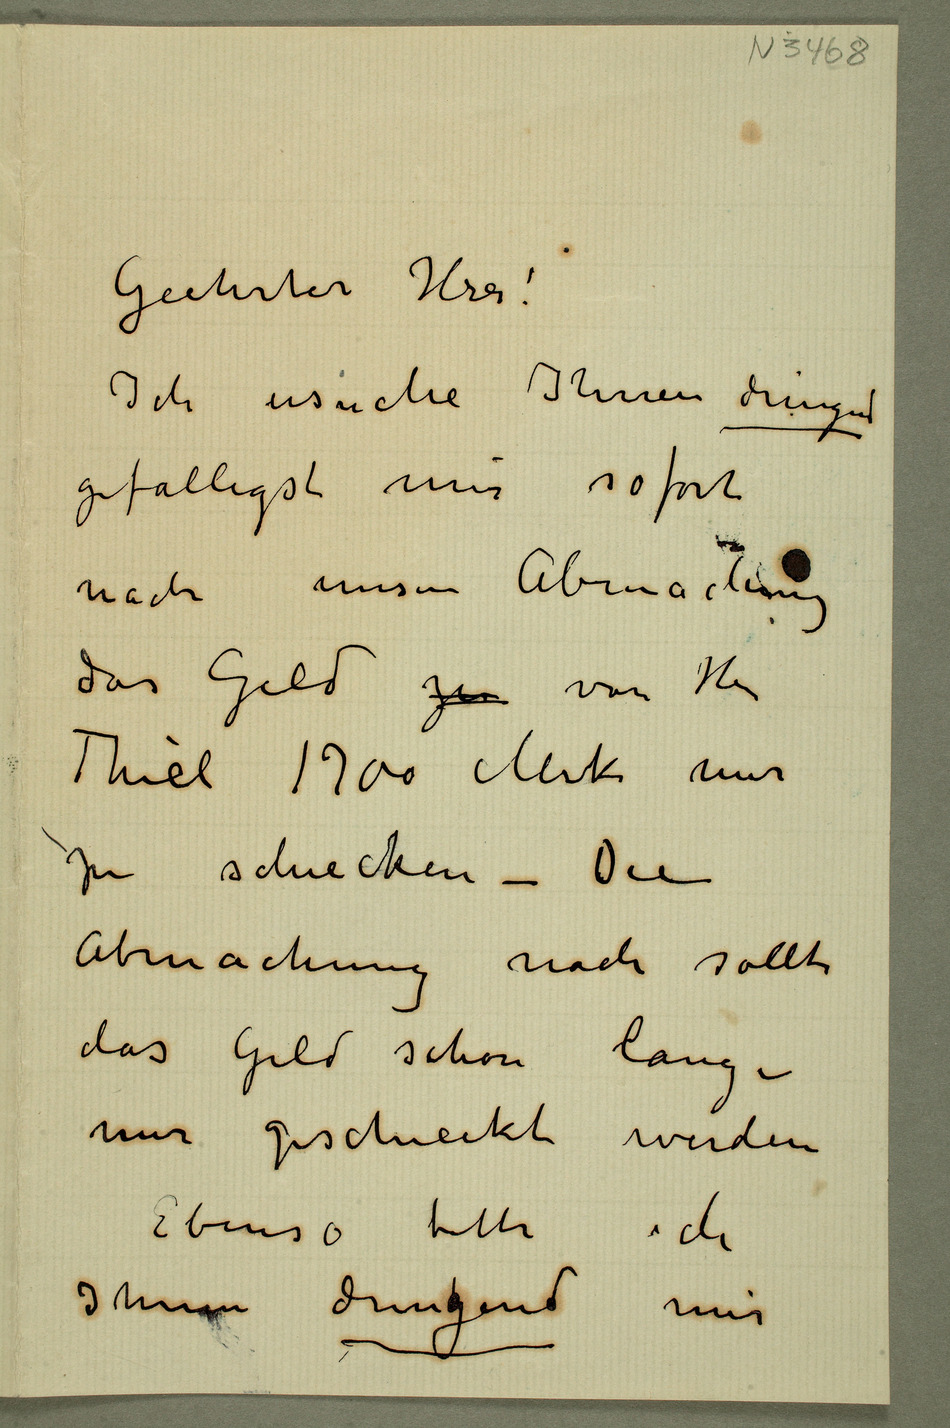 N 3468
Geehrter Herr!
Ich ersuche Ihnen dringend
gefälligst mir sofort
nach unsere Abmachung
das Geld zu von Herr
Thiel 1700 Mark mir
zu schiecken – Die
Abmachung nach sollte
das Geld schon lange
mir geschieckt werden
Ebenso bitte ich
Ihnen dringend mir